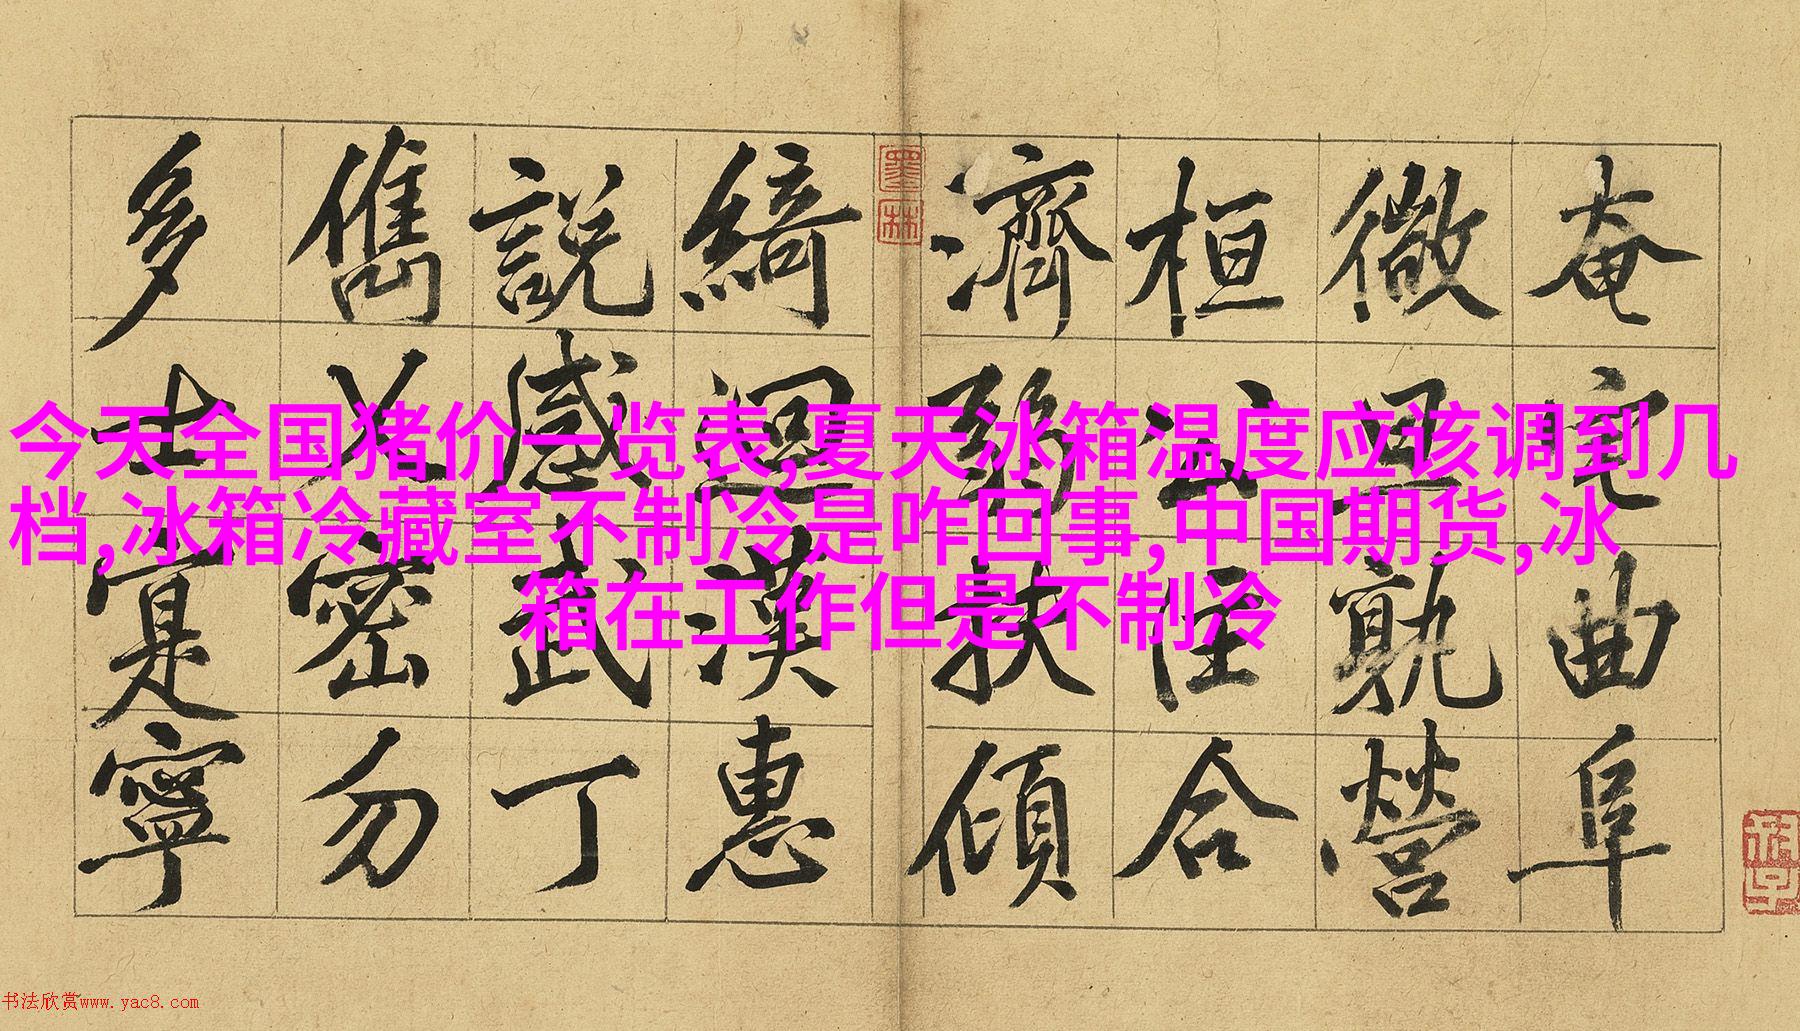 奄宅曲阜
微旦孰營
桓公匡合
濟弱扶傾
綺迴漢惠
說感武丁
儁乂密勿
多士寔寧
墨林
今天全国猪价一览表,夏天冰箱温度应该调到几
档,冰箱冷藏室不制冷是咋回事,中国期货,冰
箱在工作但是不制冷
书法欣赏www.yac8.com